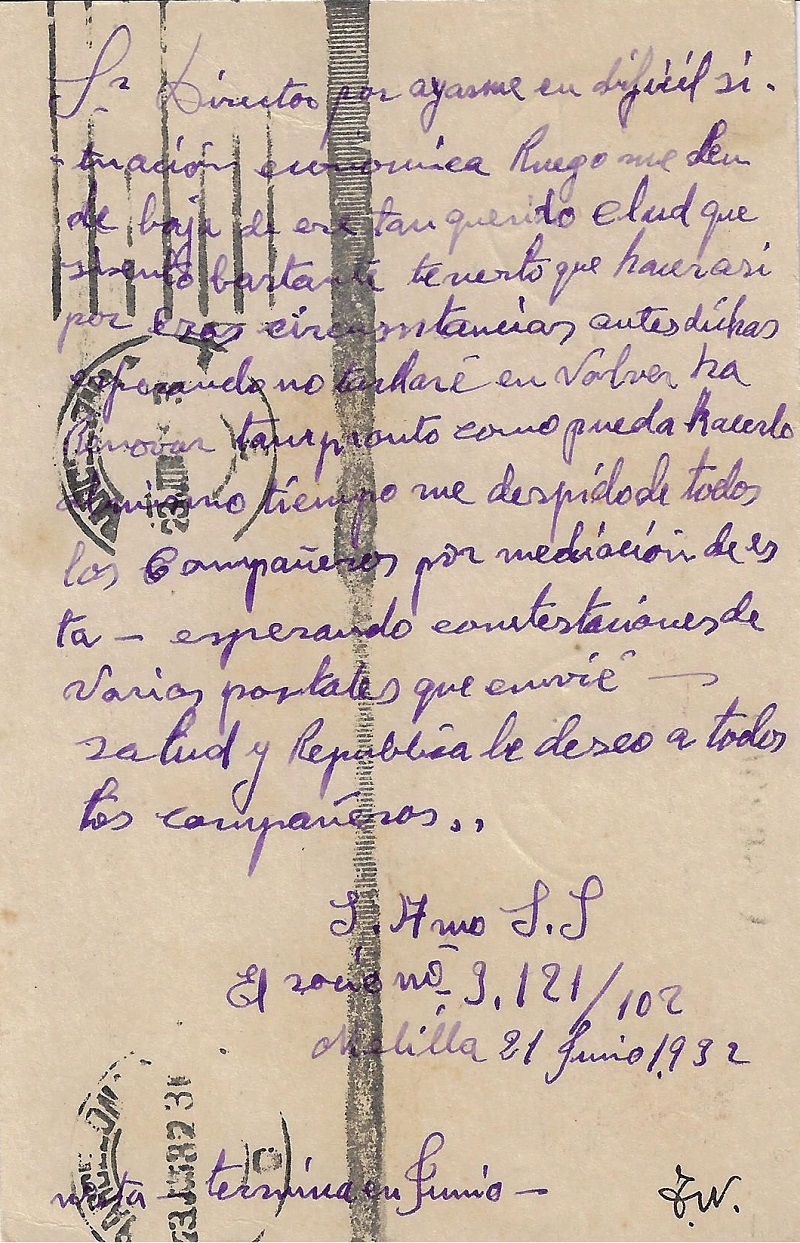 Sr Director por ayarme en difícil si-
tuación económica Ruego me den
de baja de ese tan querido Clud que
sisento bastante tenerlo que hacer asi
por esas circunstancias antes dichas
esperando no tardaré en Volver ha
Renovar tan pronto como pueda hacerlo
al mismo tiempo me despido de todos
los Compañeros por mediación de es
ta - esperando contestaciones de
Varias postales que envié -
Salud y República le deseo a todos
los compañeros.,
S. Afmo S.S
El socio nº 9.121/102
Melilla 21 Junio 1,932
nota - termina en Junio -
J.W.
BARCELONA
23 JUN 32
BARCELONA
23 JUN 32